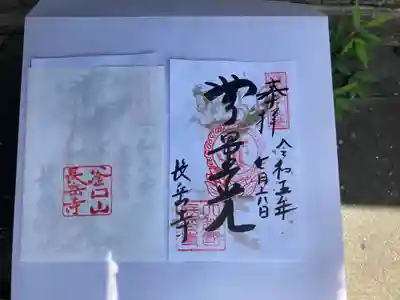 奉拝
令和五年
七月十八日
無量光
長岳寺
釜口山
長岳寺